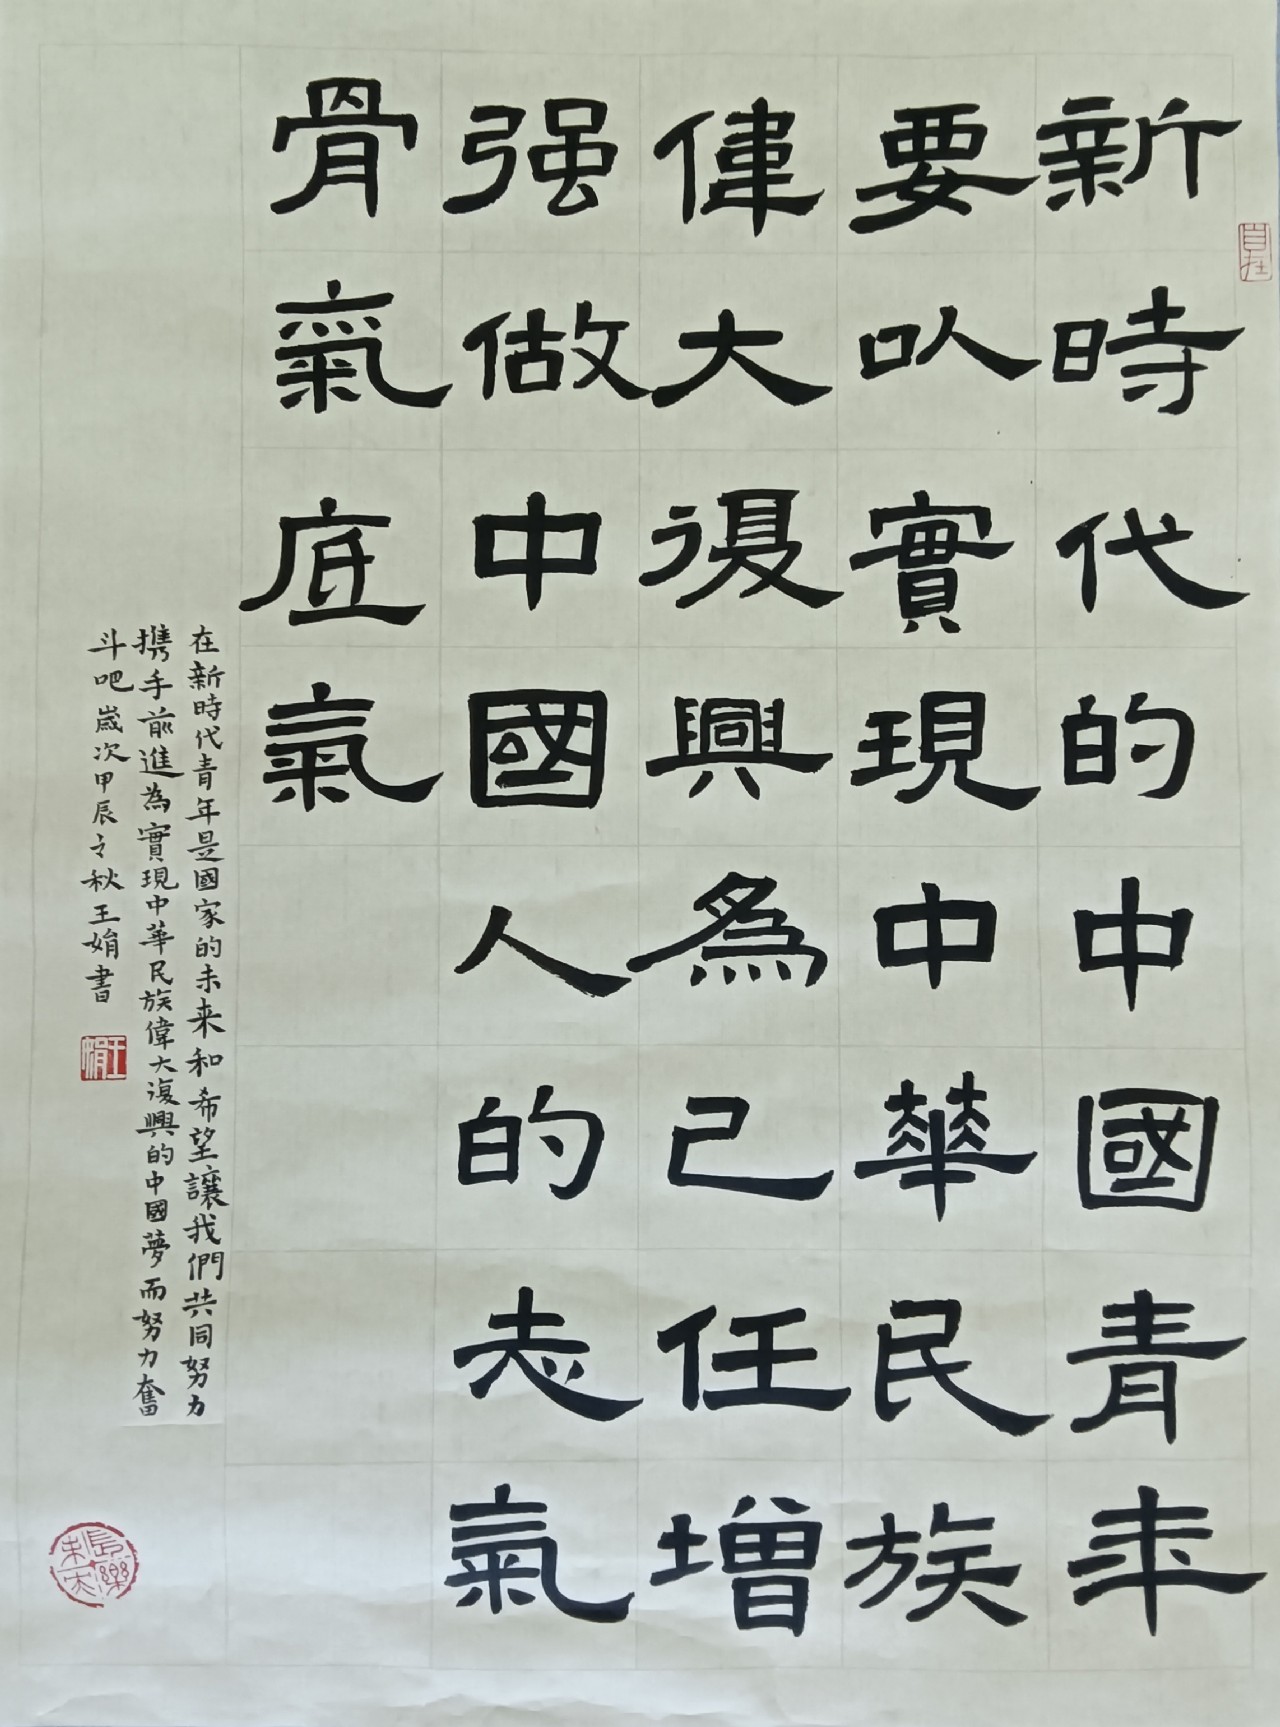 新時代的中國青年
要以實現中華民族
偉大復興為己任增
强做中國人的志氣
骨氣底氣
在新時代青年是國家的未来和希望讓我們共同努力
攜手前進為實現中華民族偉大復興的中國夢而努力奮
斗吧歲次甲辰之秋王娟書
王娟
自在
長樂未央